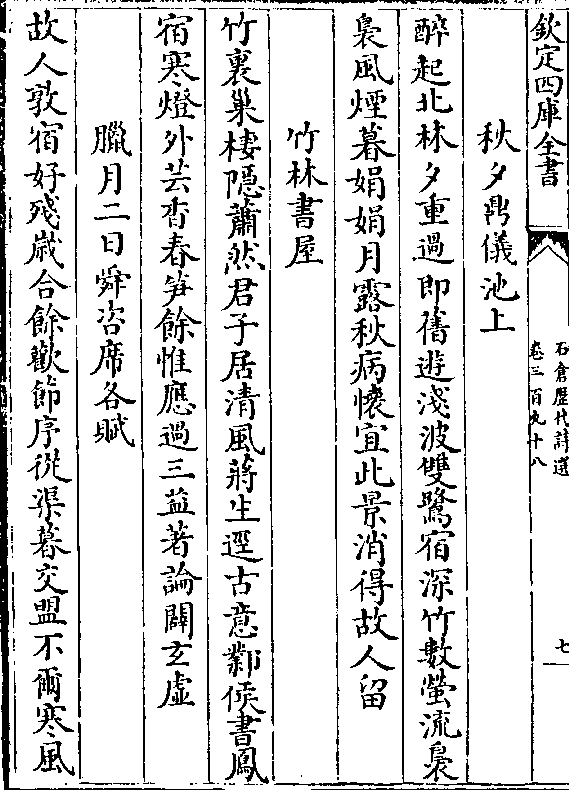 欽定四庫全書
石倉歴代詩選
卷三百九十八
七
秋夕鼎儀池上
醉起北林夕重過即舊遊淺波雙鷺宿深竹數螢流裊
裊風煙暮娟娟月露秋病懷宜此景消得故人留
竹林書屋
竹裏巢棲隱蕭然君子居清風蔣生逕古意鄴侯書鳳
宿寒燈外芸香春笋餘惟應過三益著論闢玄虚
臘月二日舜咨席各賦
故人敦宿好殘歳合餘歡節序從渠暮交盟不爾寒風